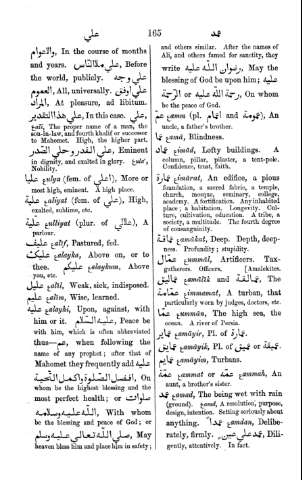 علي
165
عمد
والاعوام, In the course of months
and years. علي ملا الناس, Before
the world, publicly. علي وجه
العموم, All, universally. علي وفق
المراد, At pleasure, ad libitum.
علي هذا التقدير, In this case. علي
ali, The proper name of a man, the
son-in-law, and fourth khalif or successor
to Mahomet. High, the higher part.
علي القدر وجلي الصدر, Eminent
in dignity, and exalted in glory.
Nobility.
عليا ulya (fem. of علي), More or
most high, eminent. A high place.
علية aliyat (fem. of علي), High,
exalted, sublime, etc.
علية ulliyat (plur. of علالي), A
parlour.
عليف alif, Pastured, fed.
عليك alayka, Above, on, or to
thee. عليكم alaykum, Above
you, etc.
عليل alil, Weak, sick, indisposed.
عليم alim, Wise, learned.
عليه alayhi, Upon, against, with
him or it. عليه السلام, Peace be
with him, which is often abbreviated
thus—عم, when following the
name of any prophet; after that of
Mahomet they frequently add عليه
افضل الصلوة واكمل التحية, On
whom be the highest blessing and the
most perfect health; or صلوات
الله عليه وسلامه, With whom
be the blessing and peace of God; or
صلي الله تعالي عليه وسلم, May
heaven bless him and place him in safety;
and others similar. After the names of
Ali, and others famed for sanctity, they
write رضوان الله عليه, May the
blessing of God be upon him;
رحمة الله عليه or الرحمة, On whom
be the peace of God.
عم amm (pl. اعمام and عمومة), An
uncle, a father's brother.
عما amā, Blindness.
عماد imād, Lofty buildings. A
column, pillar, pilaster, a tent-pole.
Confidence, trust, faith.
عمارة imārat, An edifice, a pious
foundation, a sacred fabric, a temple,
church, mosque, seminary, college,
academy. A fortification. Any inhabited
place, a habitation. Longevity. Cul-
ture, cultivation, education. A tribe, a
society, a multitude. The fourth degree
of consanguinity.
عماقة amākat, Deep. Depth, deep-
ness. Profundity; stupidity.
عمال ummāl, Artificers. Tax-
gatherers. Officers. [Amalekites.
عماليق amālik and عمالقة, The
عمامة immamat, A turban, that
particularly worn by judges, doctors, etc.
عمان ummān, The high sea, the
ocean. A river of Persia.
عماير amāyir, Pl. of عمارة.
عمايق amāyik, Pl. of عميق or عميقة.
عمايم amāyim, Turbans.
عمة ammat or عمه ammah, An
aunt, a brother's sister.
عمد amad, The being wet with rain
(ground). amd, A resolution, purpose,
design, intention. Setting seriously about
anything. عمدا amdan, Delibe-
rately, firmly. عمد علي عين, Dili-
gently, attentively. In fact.